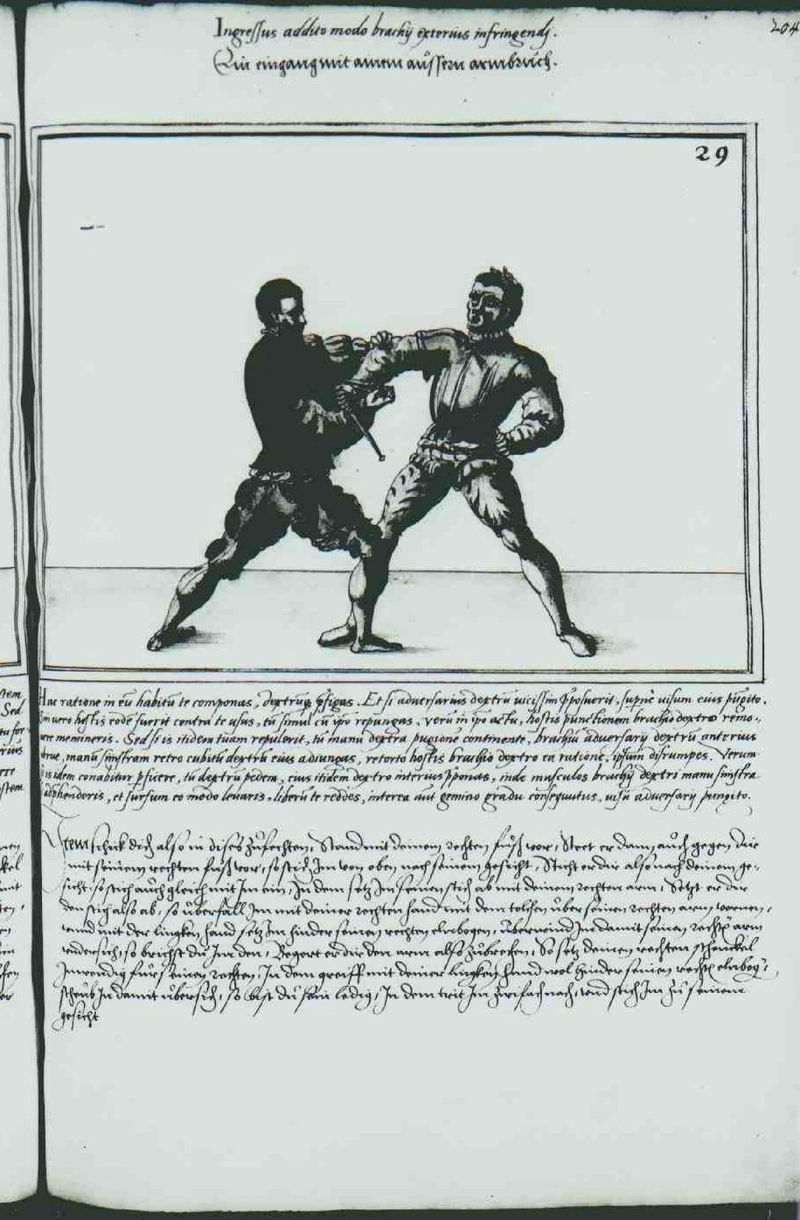 Ingressus addito modo brachij exterius infringendj.
Ein eingang mit ainem aüssern armbrüch.
204
29
Hac ratione in eũ habitũ te componas, dextrũq; p̱figas. Et si adversarius dextrũ vicissim p̱posuerit, supnè visum eius pũgito.
vero hostis eodẽ fuerit contra te usus, tũ simul cũ ipso repungas, verũ in ipso actu, hostis punctionem brachio dextro remo-
vere memineris. Sed si is itidem tuam repulerit, tũ manũ dextra pugionẽ continente, brachiũ adversarij dextrũ anterius
manũ sinistram retro cubitũ dextrũ eius adiungas, retorto hostis brachio dextro ea ratione, ipsum disrumpes. Verum
si is idem conabitur p̱ficere, tũ dextrũ pedem, eius itidem dextro interius p̱ponas, inde musculos brachij dextri manu sinistra
adp̱henderis, et sursum eo modo levaris, liberũ te reddes, interea aut gemino gradu consequutus, visũ adversarij pungito.
Item schick dich also in dises zůfechten, Stand mit deinem rechten füß vor, Steet er dann aüch gegen dir
mit seinem rechten füß vor, so stich Im von oben nach seinem gesicht, Sticht er dir also nach deinem ge-
sicht, so stich aüch gleich mit Im ein, In dem setz Im seinen stich ab mit deinem rechten arm, Setzt er dir
den stich also ab, so überfall Im mit deiner rechten hand mit dem tolchen über seinen rechten arm vornen,
vnnd mit der lingken hand setz Im hinder seinen rechten elnbogen, Überwind Im damit seinen recht arm
vndersich, so brichst dü Im den, Begert er dir den arm also zůbrechen, So setz deinen rechten schenckel
Inwendig für seinen rechten, In dem greiff mit deiner lingken hand wol hinder seinen recht elnbog,
scheüb In damit übersich, so bist dü sein ledig, In dem trit Im zwifach nach, vnd stich Im zů seinem
gesicht